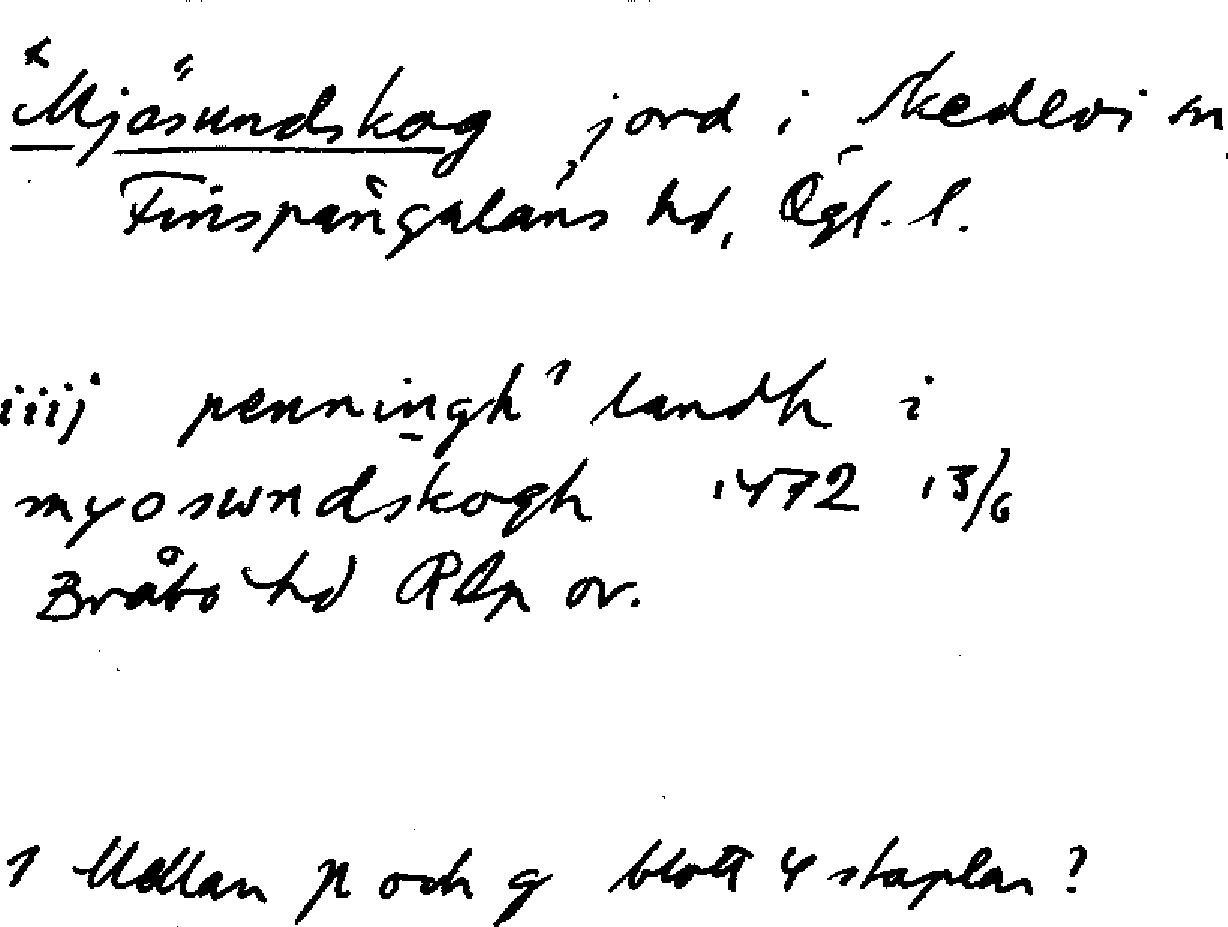 *Mjösundskog, jord i Skedevi sn
Finspångaläns hd, Ögl. l.
iiij penningh¹ landh i
myoswndskogh 1472 13/6
Bråbo hd RAp or.
1 Mellan p och g blott 4 staplar?